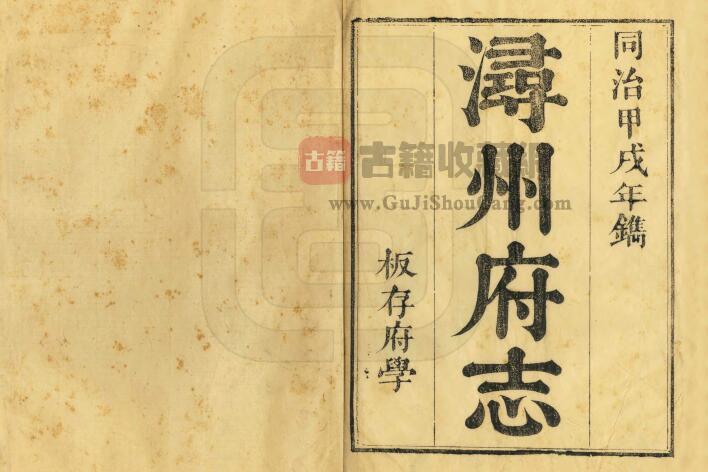 同治甲戌年鐫
潯州府志
板存府學
古籍
古籍收藏網
www.GuJiShouCang.com